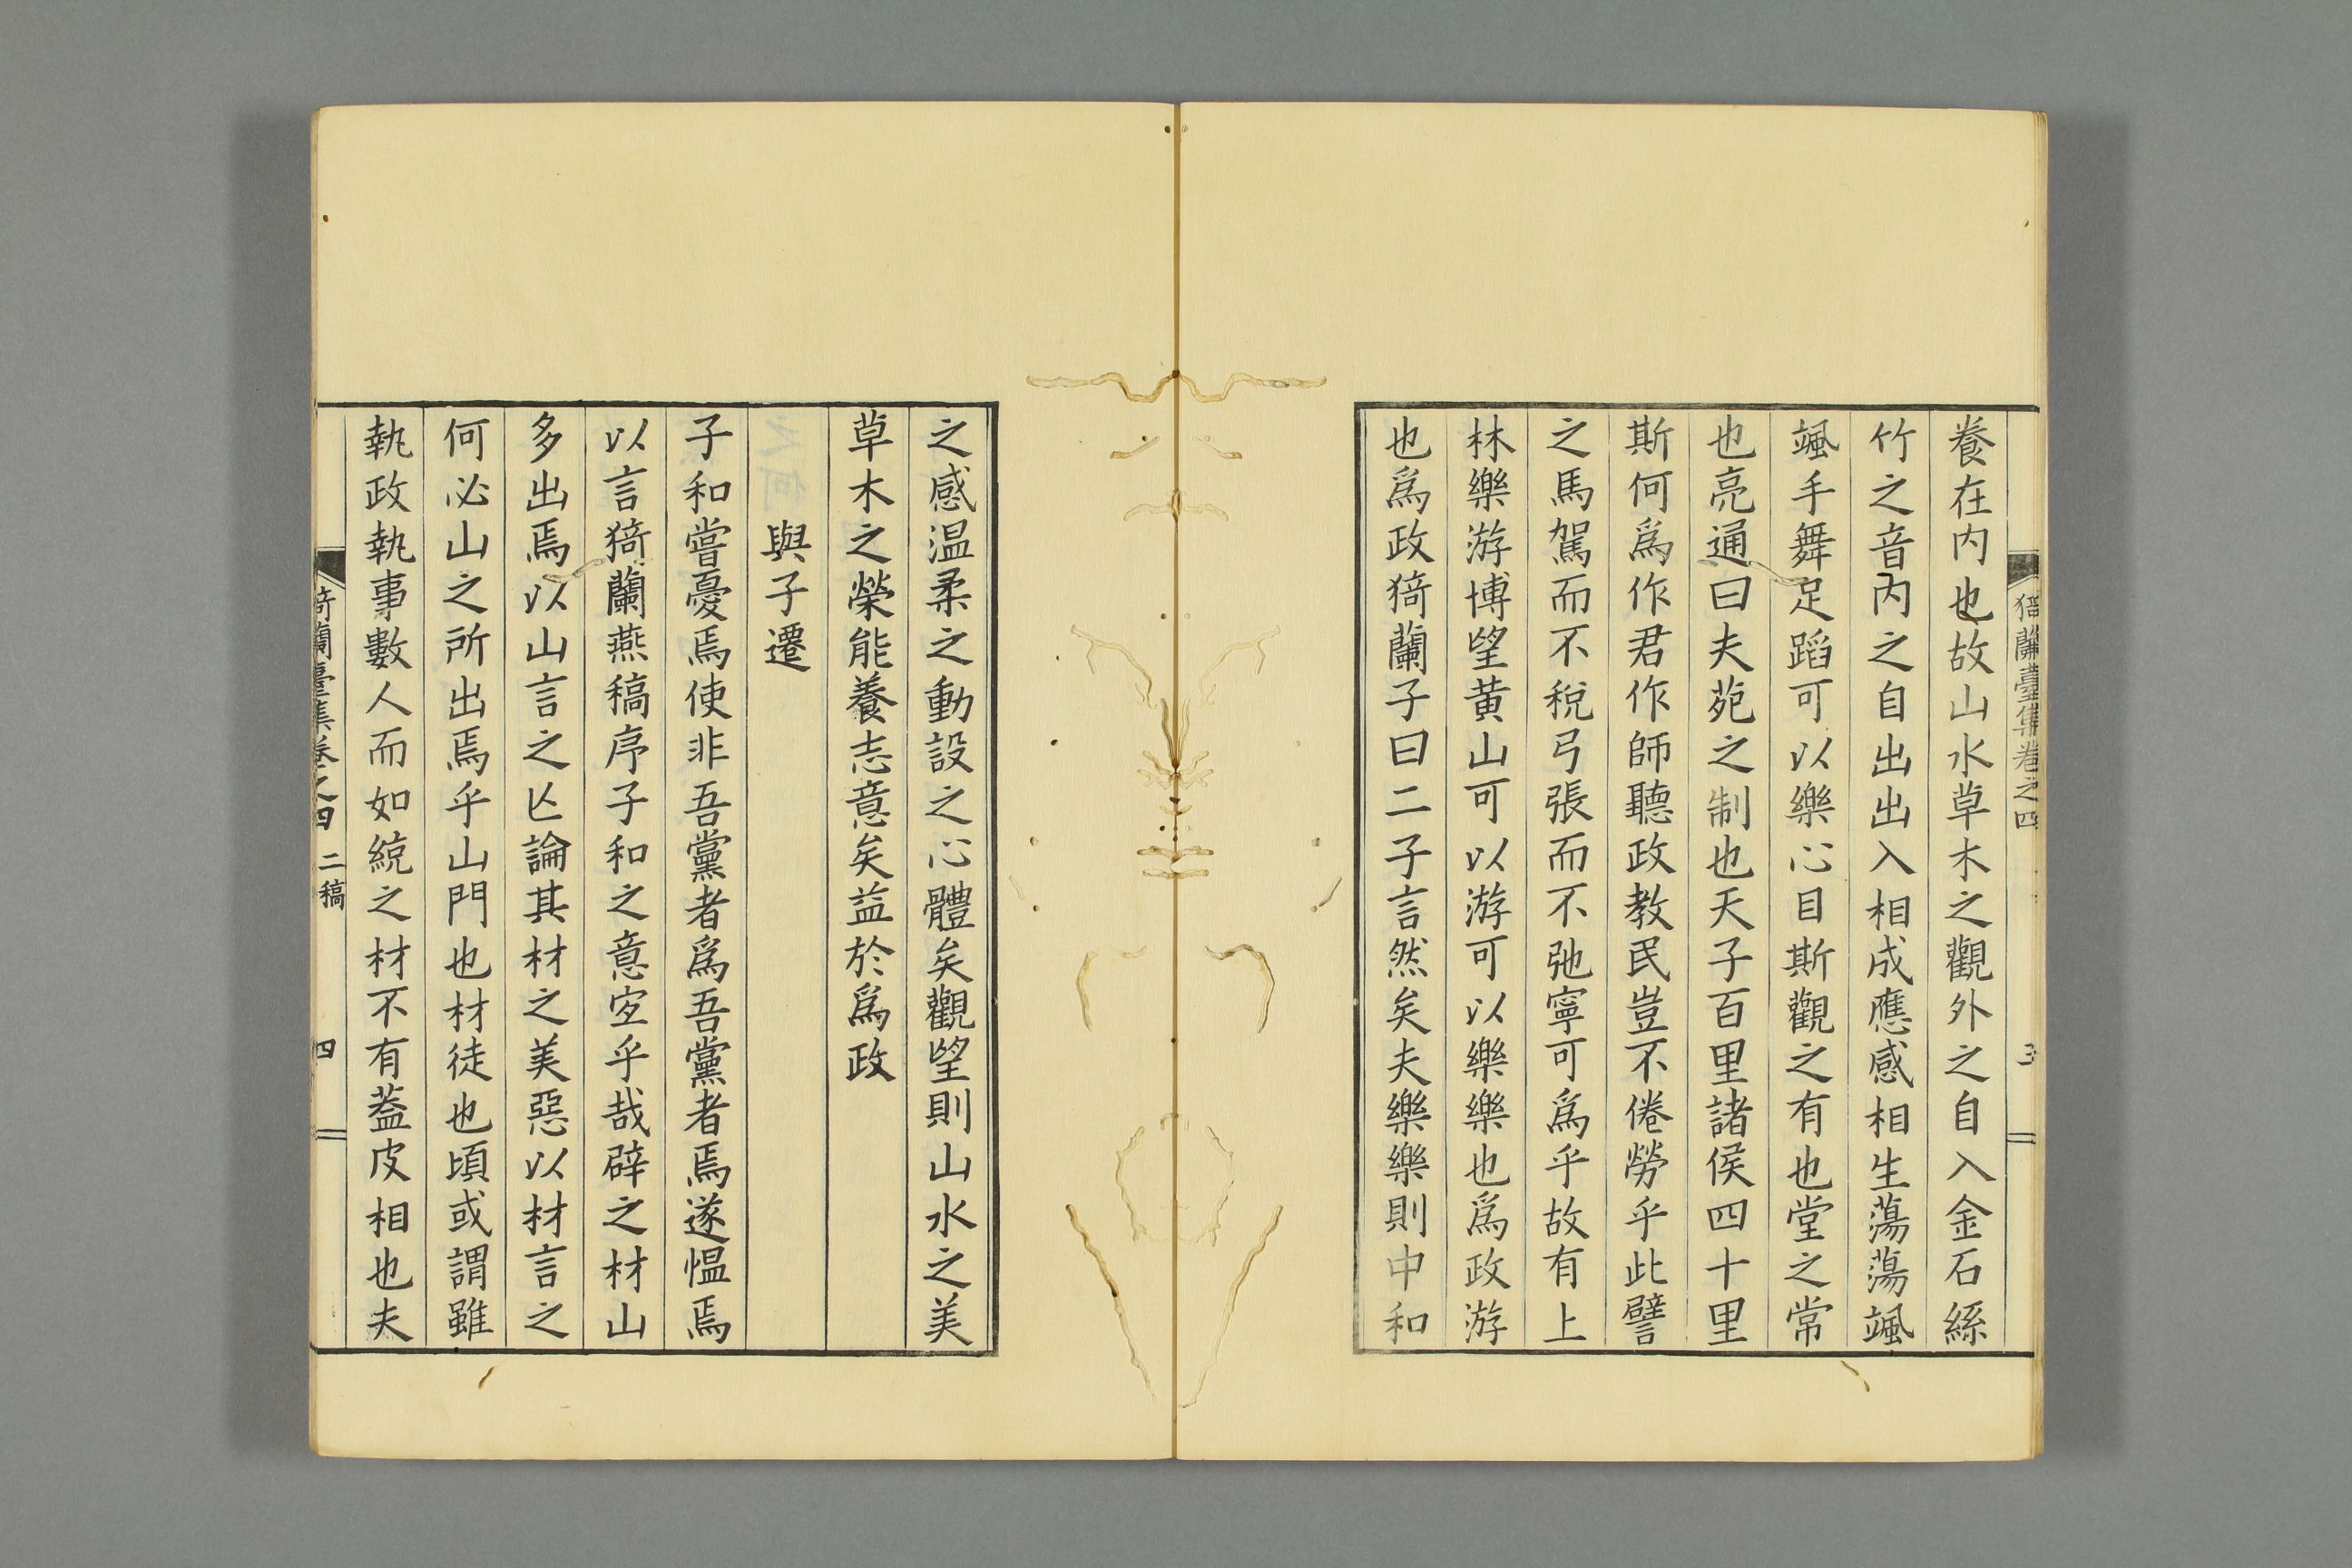 猗蘭臺集卷之四
三
養在内也故山水草木之觀外之自入金石絲
竹之音内之自出出入相成應感相生蕩蕩颯
颯手舞足蹈可以樂心目斯觀之有也堂之常
也亮通曰夫苑之制也天子百里諸侯四十里
斯何爲作君作師聽政教民豈不倦勞乎此譬
之馬駕而不稅弓張而不弛寧可爲乎故有上
林樂游博望黄山可以游可以樂樂也爲政游
也爲政猗蘭子曰二子言然矣夫樂樂則中和
之感温柔之動設之心體矣觀望則山水之美
草木之榮能養志意矣益於爲政
與子遷
子和嘗憂焉使非吾黨者爲吾黨者焉遂慍焉
以言猗蘭燕稿序子和之意宓乎哉辟之材山
多出焉以山言之亾論其材之美惡以材言之
何必山之所出焉乎山門也材徒也頃或謂雖
執政執事數人而如綂之材不有葢皮相也夫
猗蘭臺集卷之四 二稿
四